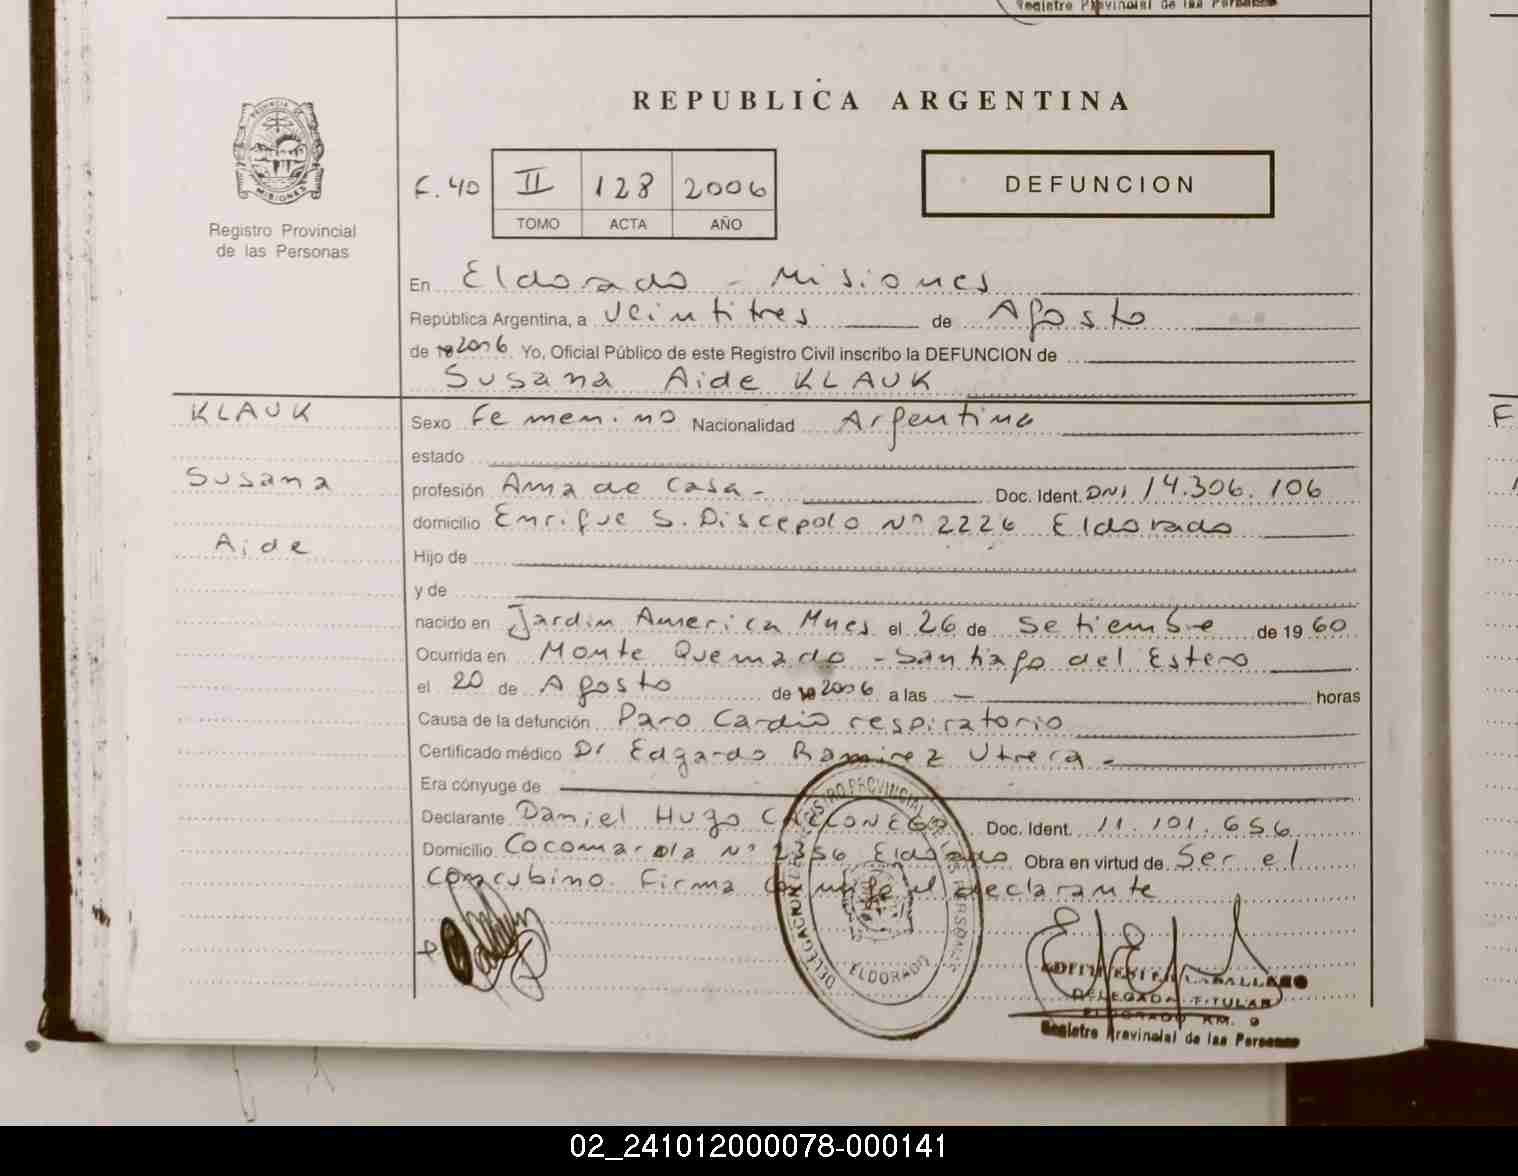 Registro Provincial de las Personas
REPUBLICA ARGENTINA
PROVINCIA DE
MISIONES
Registro Provincial
de las Personas
F. 40 II 128 2006
TOMO ACTA AÑO
DEFUNCION
En Eldorado - Misiones
República Argentina, a veintitres de Agosto
de 2006. Yo, Oficial Público de este Registro Civil inscribo la DEFUNCION de
Susana Aide KLAUK
KLAUK
Susana
Aide
Sexo Femenino Nacionalidad Argentina
estado
profesión Ama de casa - Doc. Ident. DNI 14.306.106
domicilio Enrique S. Discepolo Nº 2226 Eldorado
Hijo de
y de
nacido en Jardin America Mnes el 26 de Setiembre de 1960
Ocurrida en Monte Quemado - Santiago del Estero
el 20 de Agosto de 2006 a las — horas
Causa de la defunción Paro Cardio respiratorio
Certificado médico Dr Edgardo Ramirez Utrera -
Era cónyuge de
Declarante Daniel Hugo Doc. Ident. 11.101.656
Domicilio Cocomarola Nº 2356 Eldorado Obra en virtud de Ser el
concubino. Firma conmigo el declarante
DELEGACION REGISTRO PROVINCIAL DE LAS PERSONAS
ELDORADO
CABALLERO
DELEGADA TITULAR
ELDORADO KM. 9
Registro Provincial de las Personas
F
02_241012000078-000141